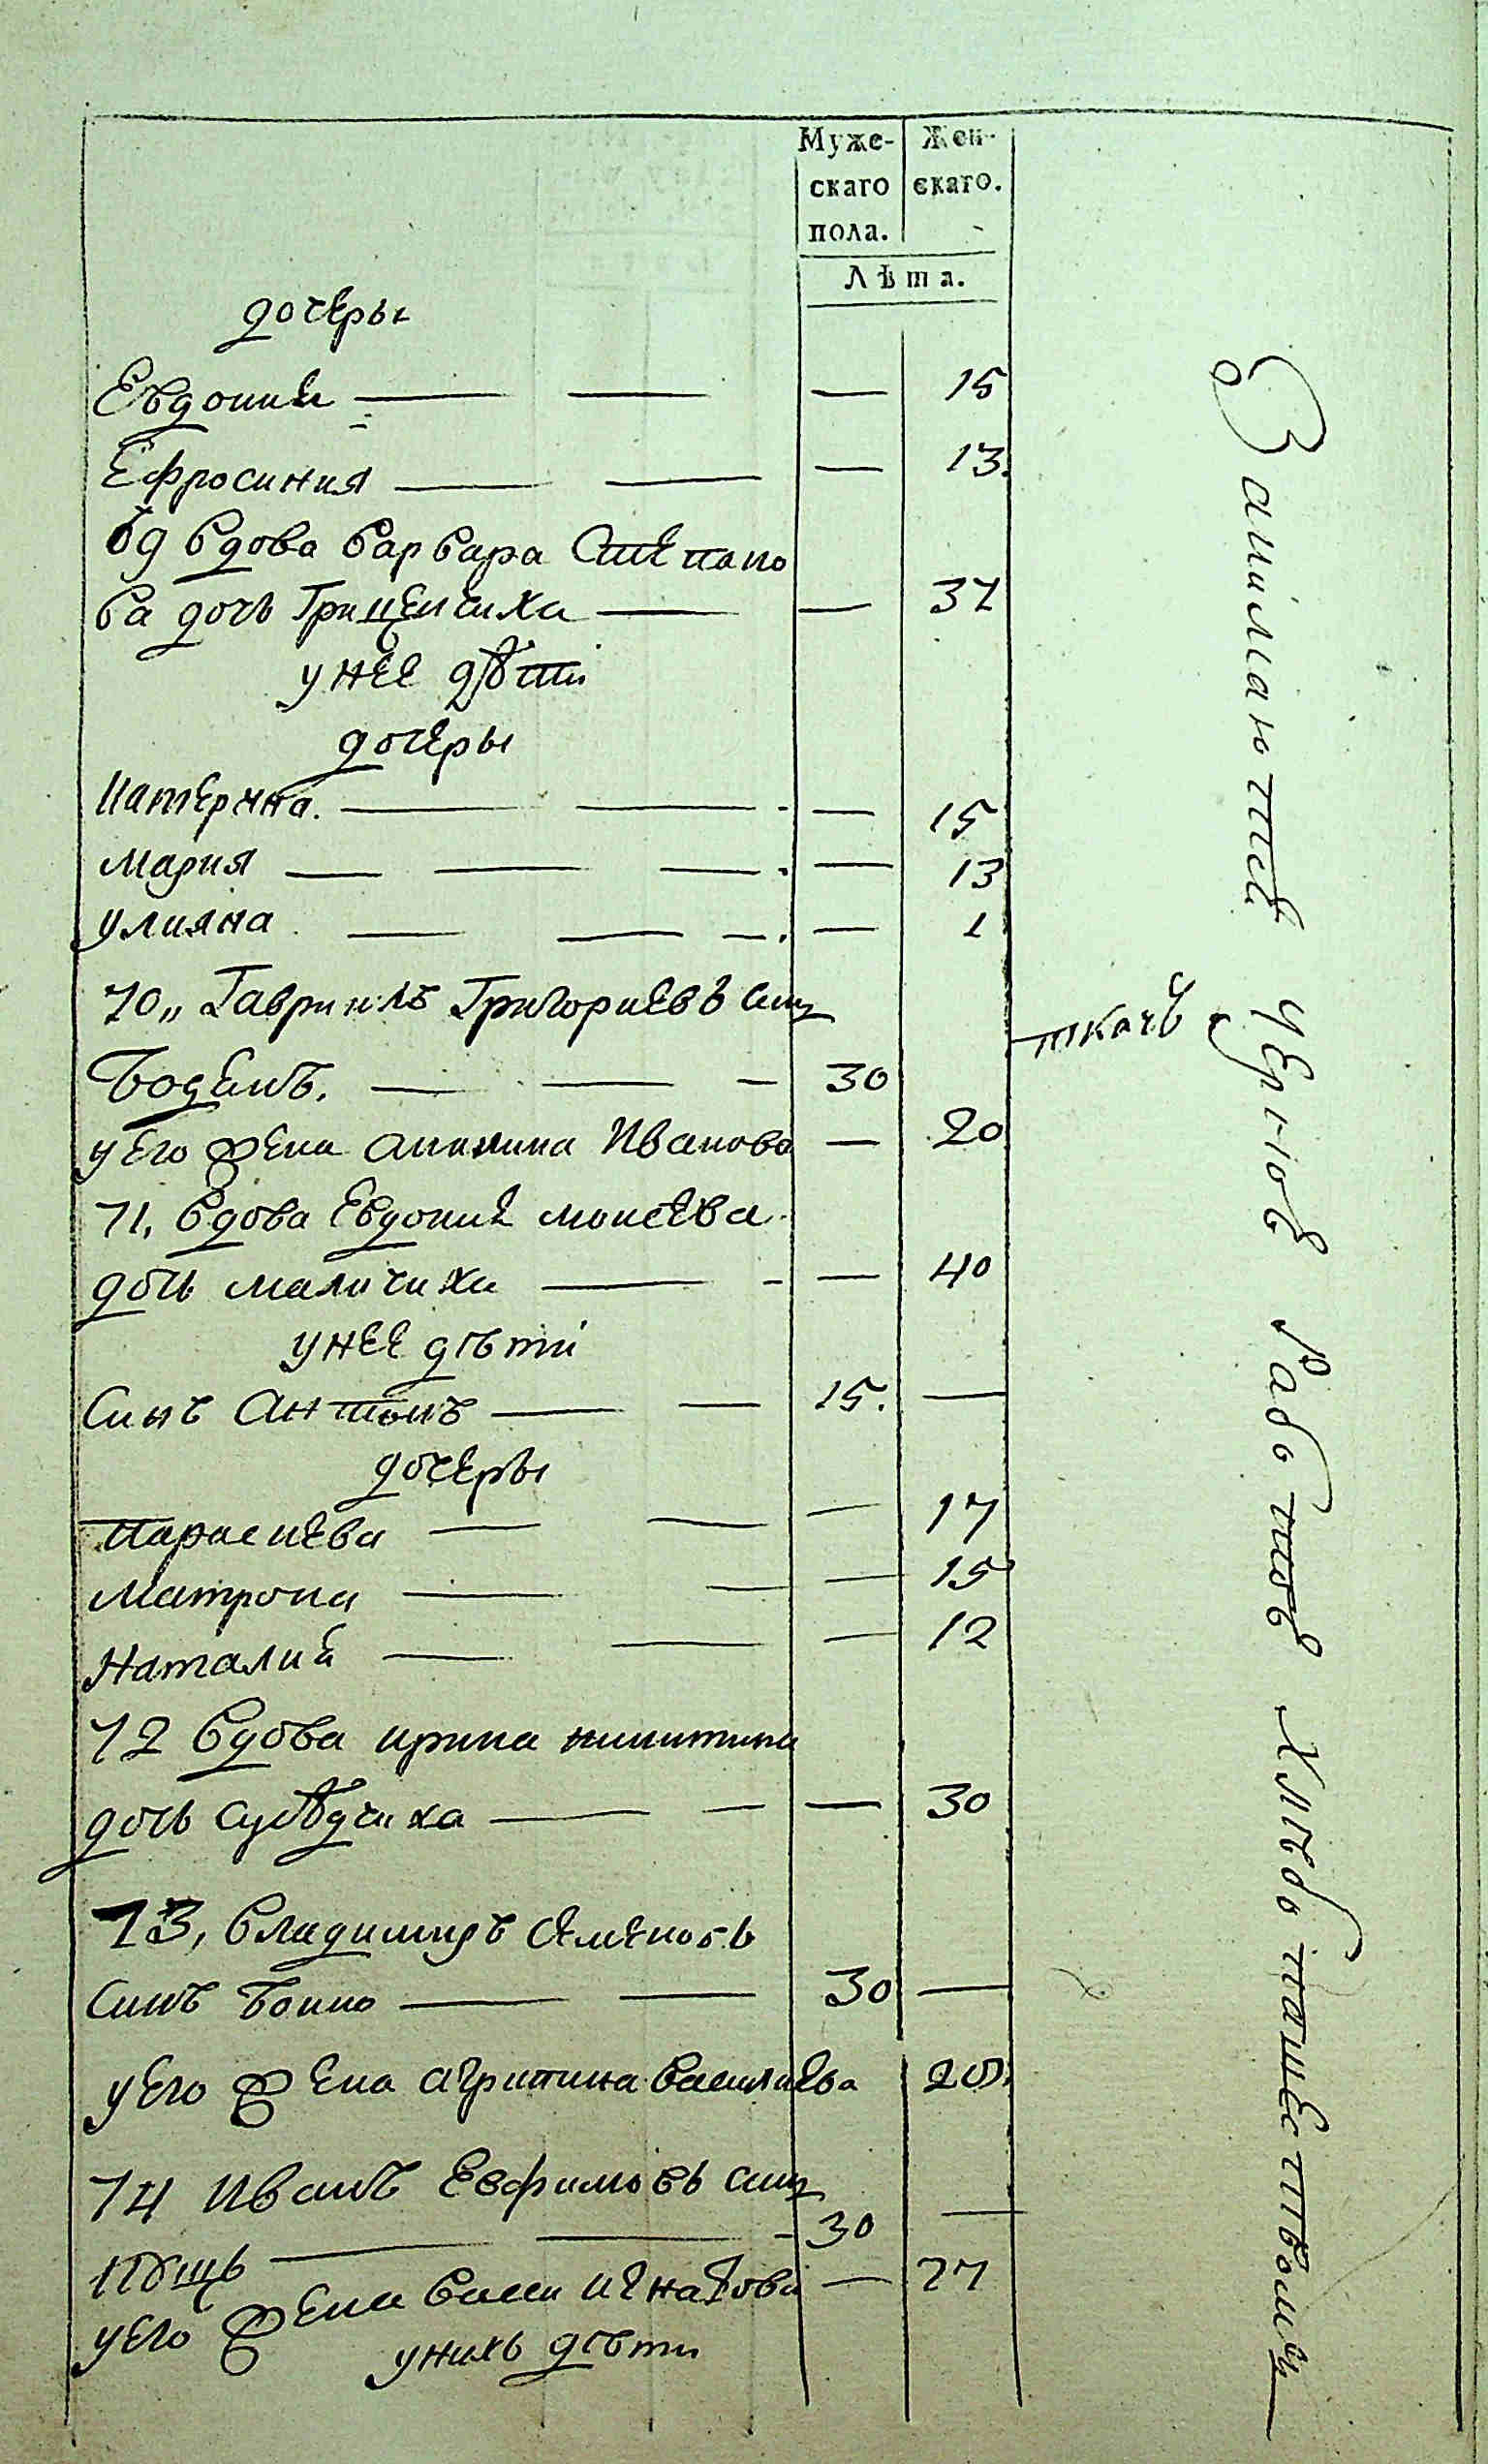 Муже-
скаго
пола.
Жен-
скаго.
Лѣта.
дочеры
Евдокия — — — 15
Ефросиния — — — 13.
69 вдова варвара Степано
ва дочь Гриценчиха — — 37
у нее дѣти
дочеры
Катерина. — — — 15
Мария — — — — 13
улияна — — — — 1
70„ Гавриилъ Григориевъ син
— — — 30
ткачъ
у его жена акилина Иванова — 20
71, вдова Евдокия моисеева
дочь маличиха — — — 40
у нее дѣти
Синъ Антонъ — — 15. —
дочеры
Параскева — — — 17
Матрона — — — 15
Наталия — — — 12
72 вдова ирина никитина
дочь субѣдчиха — — — 30
73, владимиръ Семеновъ
Синъ бойко — — 30 —
у его жена агрипина василиева 20
74 Иванъ Евфимовъ син
— — — 30 —
у его жена васса игнатова — 27
у нихъ дѣти
Занімаютсѣ чернов работов хлѣбопашетвом